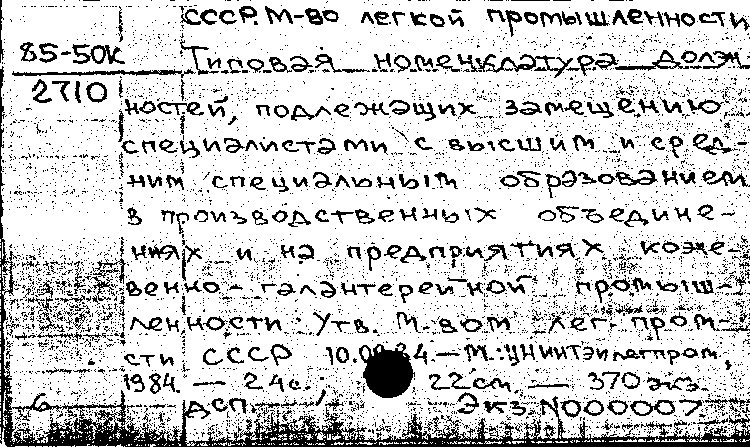 СССР. М-во легкой промышленности
85-50к
Типовая номенклатура долж-
2710
ностей, подлежащих замещению
специалистами с высшим и сред-
ним специальным образованием
в производственных объедине-
ниях и на предприятиях коже-
венно-галантерейной промыш-
ленности: Утв. М-вом лег. пром-
сти СССР 10.09.84. — М.: ЦНИИТЭИлегпром,
1984. — 24с.; 22см. — 370 экз.
ДСП. Экз. N000007